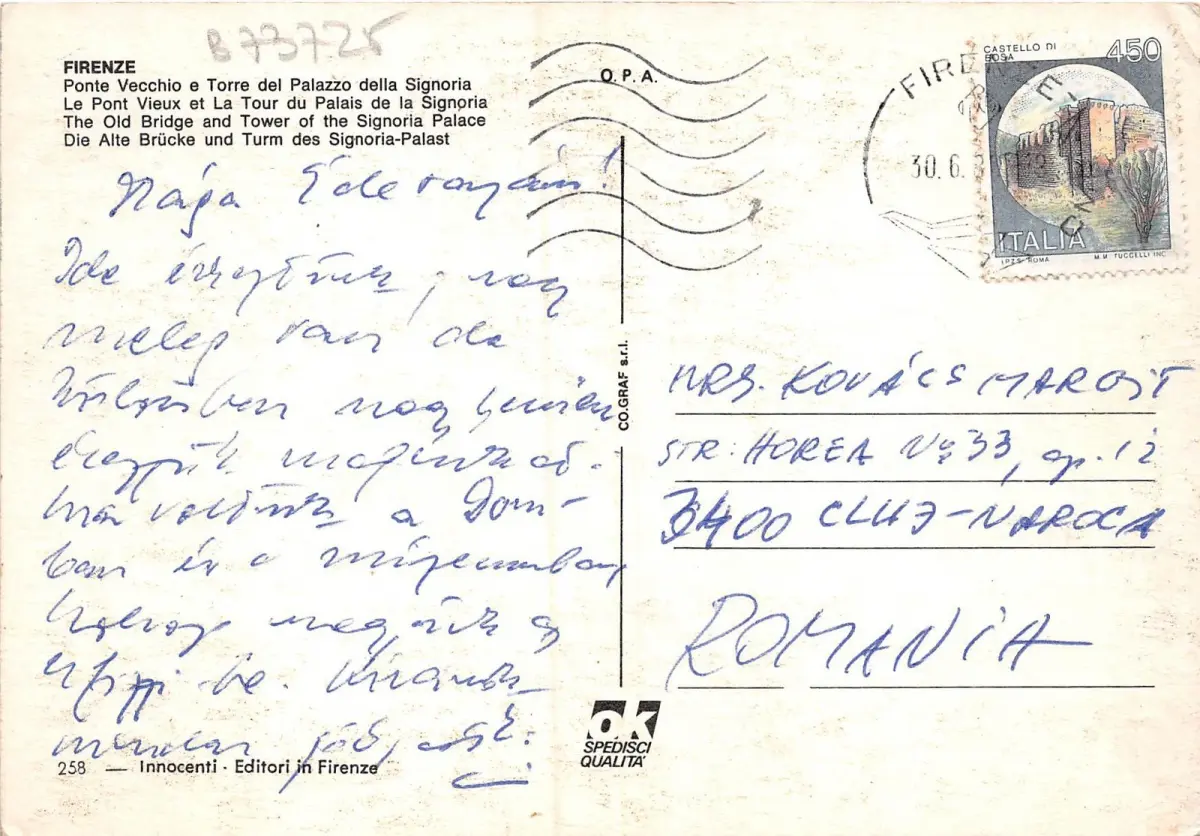 B 73725
FIRENZE
Ponte Vecchio e Torre del Palazzo della Signoria
Le Pont Vieux et La Tour du Palais de la Signoria
The Old Bridge and Tower of the Signoria Palace
Die Alte Brücke und Turm des Signoria-Palast
O.P.A.
FIRENZE
30.6.
CASTELLO DI
BOSA
450
ITALIA
I.P.Z.S. ROMA
M.M. TUCCELLI INC.
Édesanyám!
Ide érkeztünk, nagy
meleg van de
különben nagy
érezzük magunkat.
Ma voltunk a Dom-
ban és a múzeumban
Holnap megyünk
be. Kívánok
minden jót,
CO.GRAF s.r.l.
MRS. KOVÁCS MARGIT
STR. HOREA No 33, ap. 12
3400 CLUJ-NAPOCA
ROMANIA
ok
SPEDISCI
QUALITA'
258 — Innocenti - Editori in Firenze